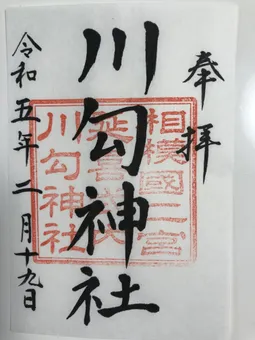 奉拝
川勾神社
令和五年二月十九日
相模國二宮
延喜式内
川勾神社